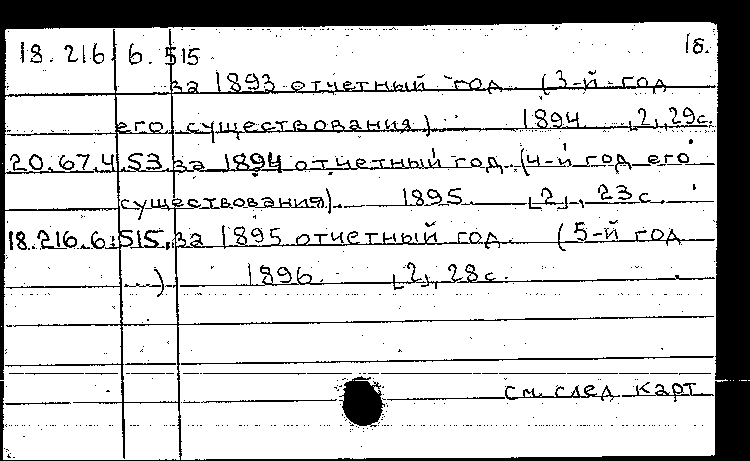 18.216.6.515 1б.
за 1893 отчетный год (3-й год
его существования). 1894 [2], 29с.
20.67.4.53. за 1894 отчетный год. (4-й год его
существования). 1895. [2], 23 с.
18.216.6:515, за 1895 отчетный год. (5-й год
...) 1896. [2], 28 с.
см. след карт.